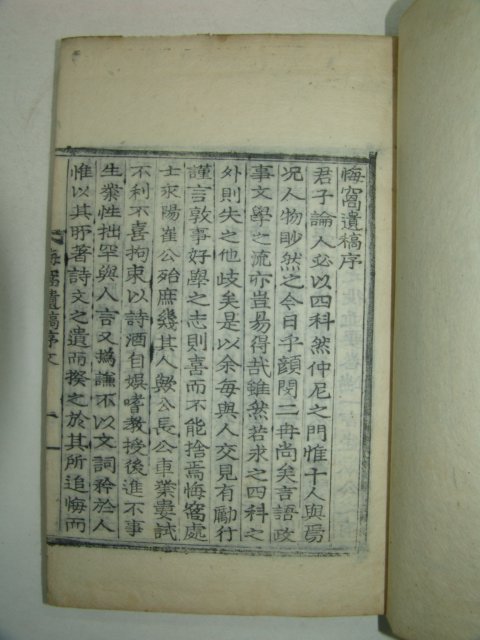 悔窩遺稿序
君子論人必以四科然仲尼之門惟十人與焉
况人物眇然之今日乎顔閔二冉尚矣言語政
事文學之流亦豈易得哉雖然若求之四科之
外則失之他歧矣是以余每與人交見有勵行
謹言敦事好學之志則喜而不能捨焉悔窩處
士永陽崔公殆庶幾其人歟公長公車業屢試
不利不喜拘束以詩酒自娛嗜教授後進不事
生業性拙罕與人言又撝謙不以文詞矜於人
惟以其所著詩文之遺而揆之於其所追悔而
悔窩遺稿序文 一